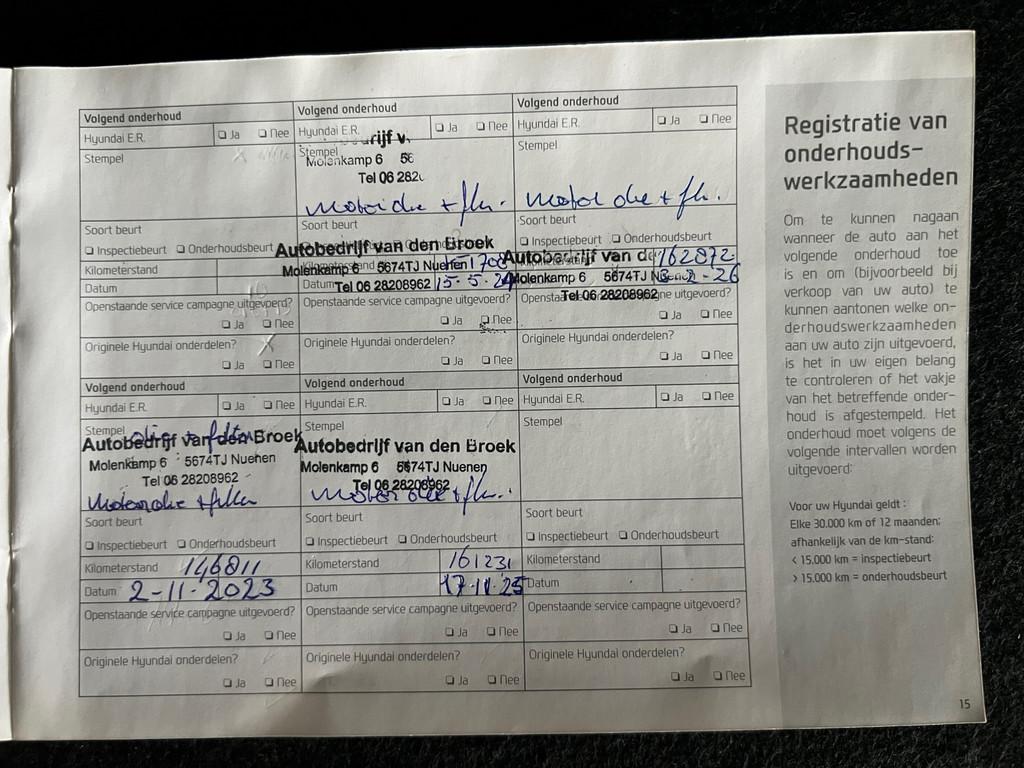 Volgend onderhoud
Hyundai E.R. Ja Nee
Stempel
Soort beurt
Inspectiebeurt Onderhoudsbeurt
Kilometerstand
Datum
Openstaande service campagne uitgevoerd?
Ja Nee
Originele Hyundai onderdelen?
Ja Nee
Volgend onderhoud
Hyundai E.R. Ja Nee
Stempel
Molenkamp 6 56
Tel 06 282
Soort beurt
Autobedrijf van den Broek
Molenkamp 6 5674TJ Nuenen
Datum Tel 06 28208962 15-5-24
Openstaande service campagne uitgevoerd?
Ja Nee
Originele Hyundai onderdelen?
Ja Nee
Volgend onderhoud
Hyundai E.R. Ja Nee
Stempel
motor olie + flr.
Soort beurt
Inspectiebeurt Onderhoudsbeurt
Autobedrijf van d 162872
Molenkamp 6 5674TJ 3-2-26
Tel 06 28208962
Ja Nee
Originele Hyundai onderdelen?
Ja Nee
Volgend onderhoud
Hyundai E.R. Ja Nee
Stempel
Autobedrijf van den Broek
Molenkamp 6 5674TJ Nuenen
Tel 06 28208962
Motorolie + filter
Soort beurt
Inspectiebeurt Onderhoudsbeurt
Kilometerstand 146811
Datum 2-11-2023
Openstaande service campagne uitgevoerd?
Ja Nee
Originele Hyundai onderdelen?
Ja Nee
Volgend onderhoud
Hyundai E.R. Ja Nee
Stempel
Autobedrijf van den Broek
Molenkamp 6 5674TJ Nuenen
Tel 06 28208962
Soort beurt
Inspectiebeurt Onderhoudsbeurt
Kilometerstand 161231
Datum 17-11-25
Openstaande service campagne uitgevoerd?
Ja Nee
Originele Hyundai onderdelen?
Ja Nee
Volgend onderhoud
Hyundai E.R. Ja Nee
Stempel
Soort beurt
Inspectiebeurt Onderhoudsbeurt
Kilometerstand
Datum
Openstaande service campagne uitgevoerd?
Ja Nee
Originele Hyundai onderdelen?
Ja Nee
Registratie van
onderhouds-
werkzaamheden
Om te kunnen nagaan
wanneer de auto aan het
volgende onderhoud toe
is en om (bijvoorbeeld bij
verkoop van uw auto) te
kunnen aantonen welke on-
derhoudswerkzaamheden
aan uw auto zijn uitgevoerd,
is het in uw eigen belang
te controleren of het vakje
van het betreffende onder-
houd is afgestempeld. Het
onderhoud moet volgens de
volgende intervallen worden
uitgevoerd:
Voor uw Hyundai geldt :
Elke 30.000 km of 12 maanden;
afhankelijk van de km-stand:
< 15.000 km = inspectiebeurt
> 15.000 km = onderhoudsbeurt
15